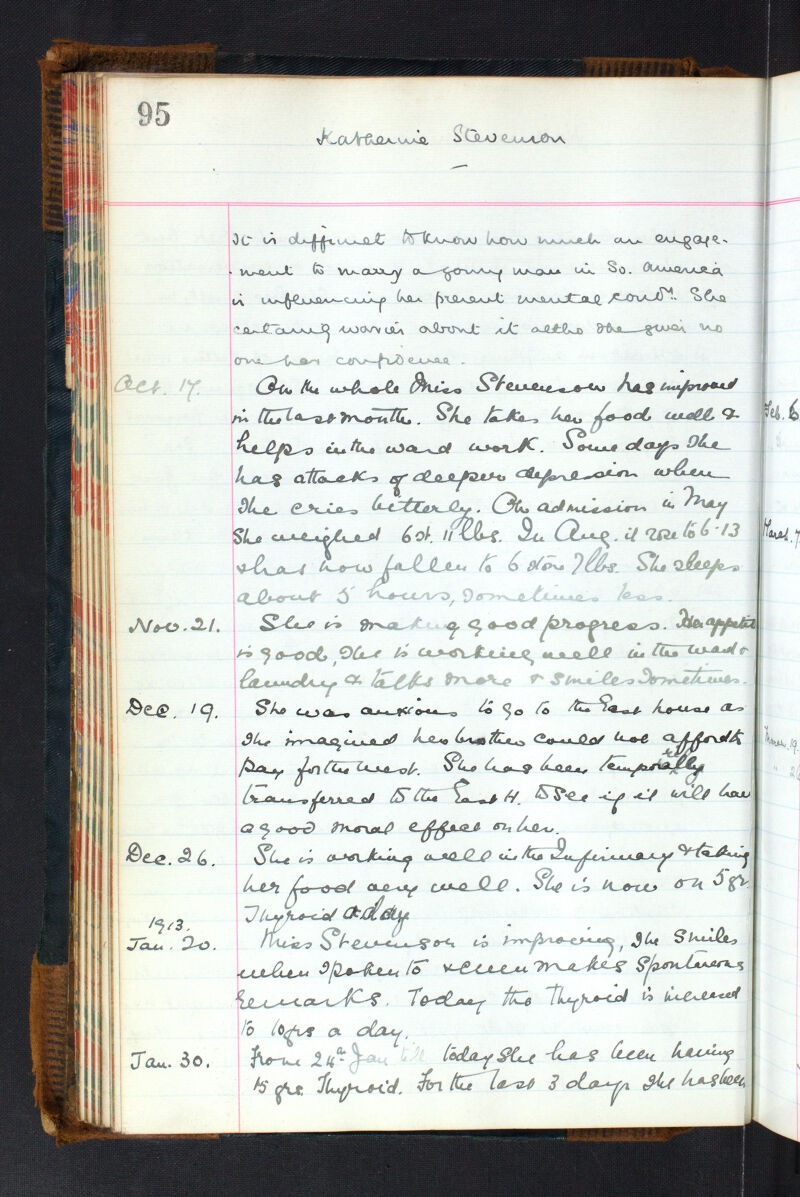 95
Katherine Stevenson
It is difficult to know how much an engage-
-ment to marry a young man in So. America
is influencing her present mental condn. She
certainly worries about it altho she gives no
one her confidence.
Oct. 17. On the whole Miss Stevenson has improved
in the last month. She takes her food well &
helps in the ward work. Some days she
has attacks of deeper depression when
she cries bitterly. On admission in May
she weighed 6 st. 11 lbs. In Aug. it rose to 6-13
& has now fallen to 6 stone 7 lbs. She sleeps
about 5 hours, sometimes less.
Nov. 21. She is making good progress. Her appetite
is good, she is working well in the ward &
laundry & talks more & smiles sometimes.
Dec. 19. She was anxious to go to the East house as
she imagined her brother could not afford to
pay for the west. She has been temporarily
transferred to the East H. to see if it will have
a good moral effect on her.
Dec. 26. She is working well in the Infirmary & taking
her food very well. She is now on 5 gr.
Thyroid a day
1913.
Jan. 20. Miss Stevenson is improving, she smiles
when spoken to & even makes spontaneous
remarks. Today the Thyroid is increased
to 10 grs a day.
Jan. 30. From 24th Jan till today she has been having
15 grs. Thyroid. For the last 3 days she has been
Feb. 6
March. 7